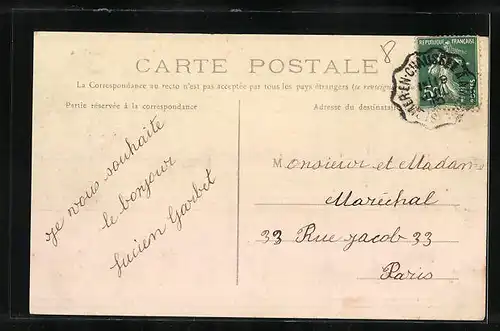 REPUBLIQUE FRANÇAISE
CARTE POSTALE
La Correspondance au recto n'est pas acceptée par tous les pays étrangers (se renseigner
Partie réservée à la correspondance
Adresse du destinataire
je vous souhaite
le bonjour
Lucien Garbet
Monsieur et Madame
Maréchal
33 Rue jacob 33
Paris